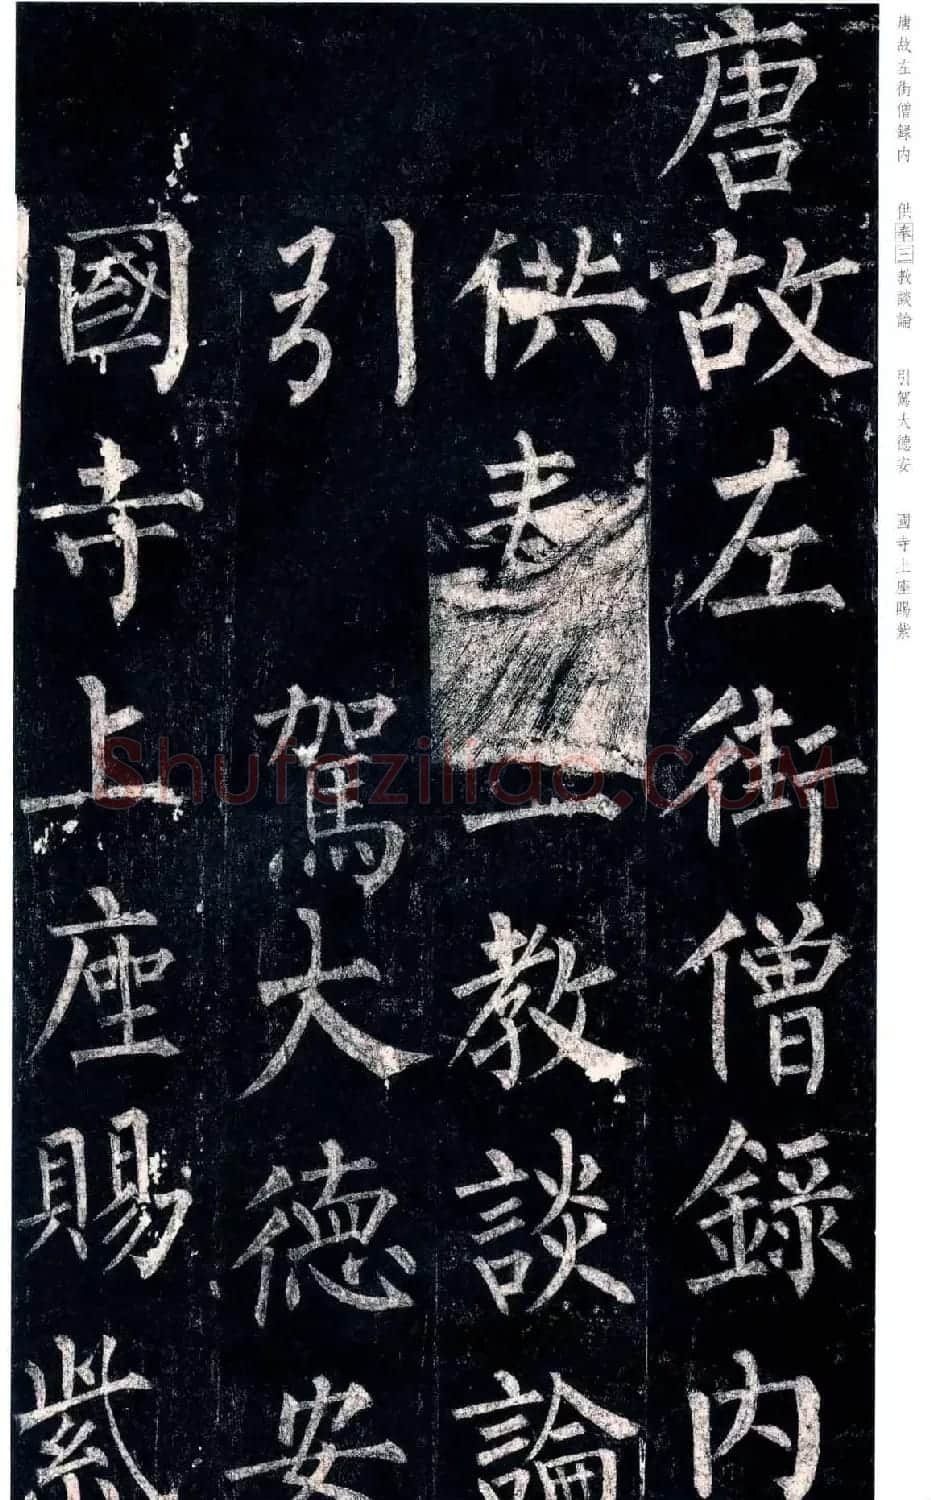 唐故左街僧録内
供奉三教談論
引駕大德安
國寺上座賜紫
唐故左街僧録内 供奉三教談論 引駕大德安 國寺上座賜紫
Shufaziliao.COM